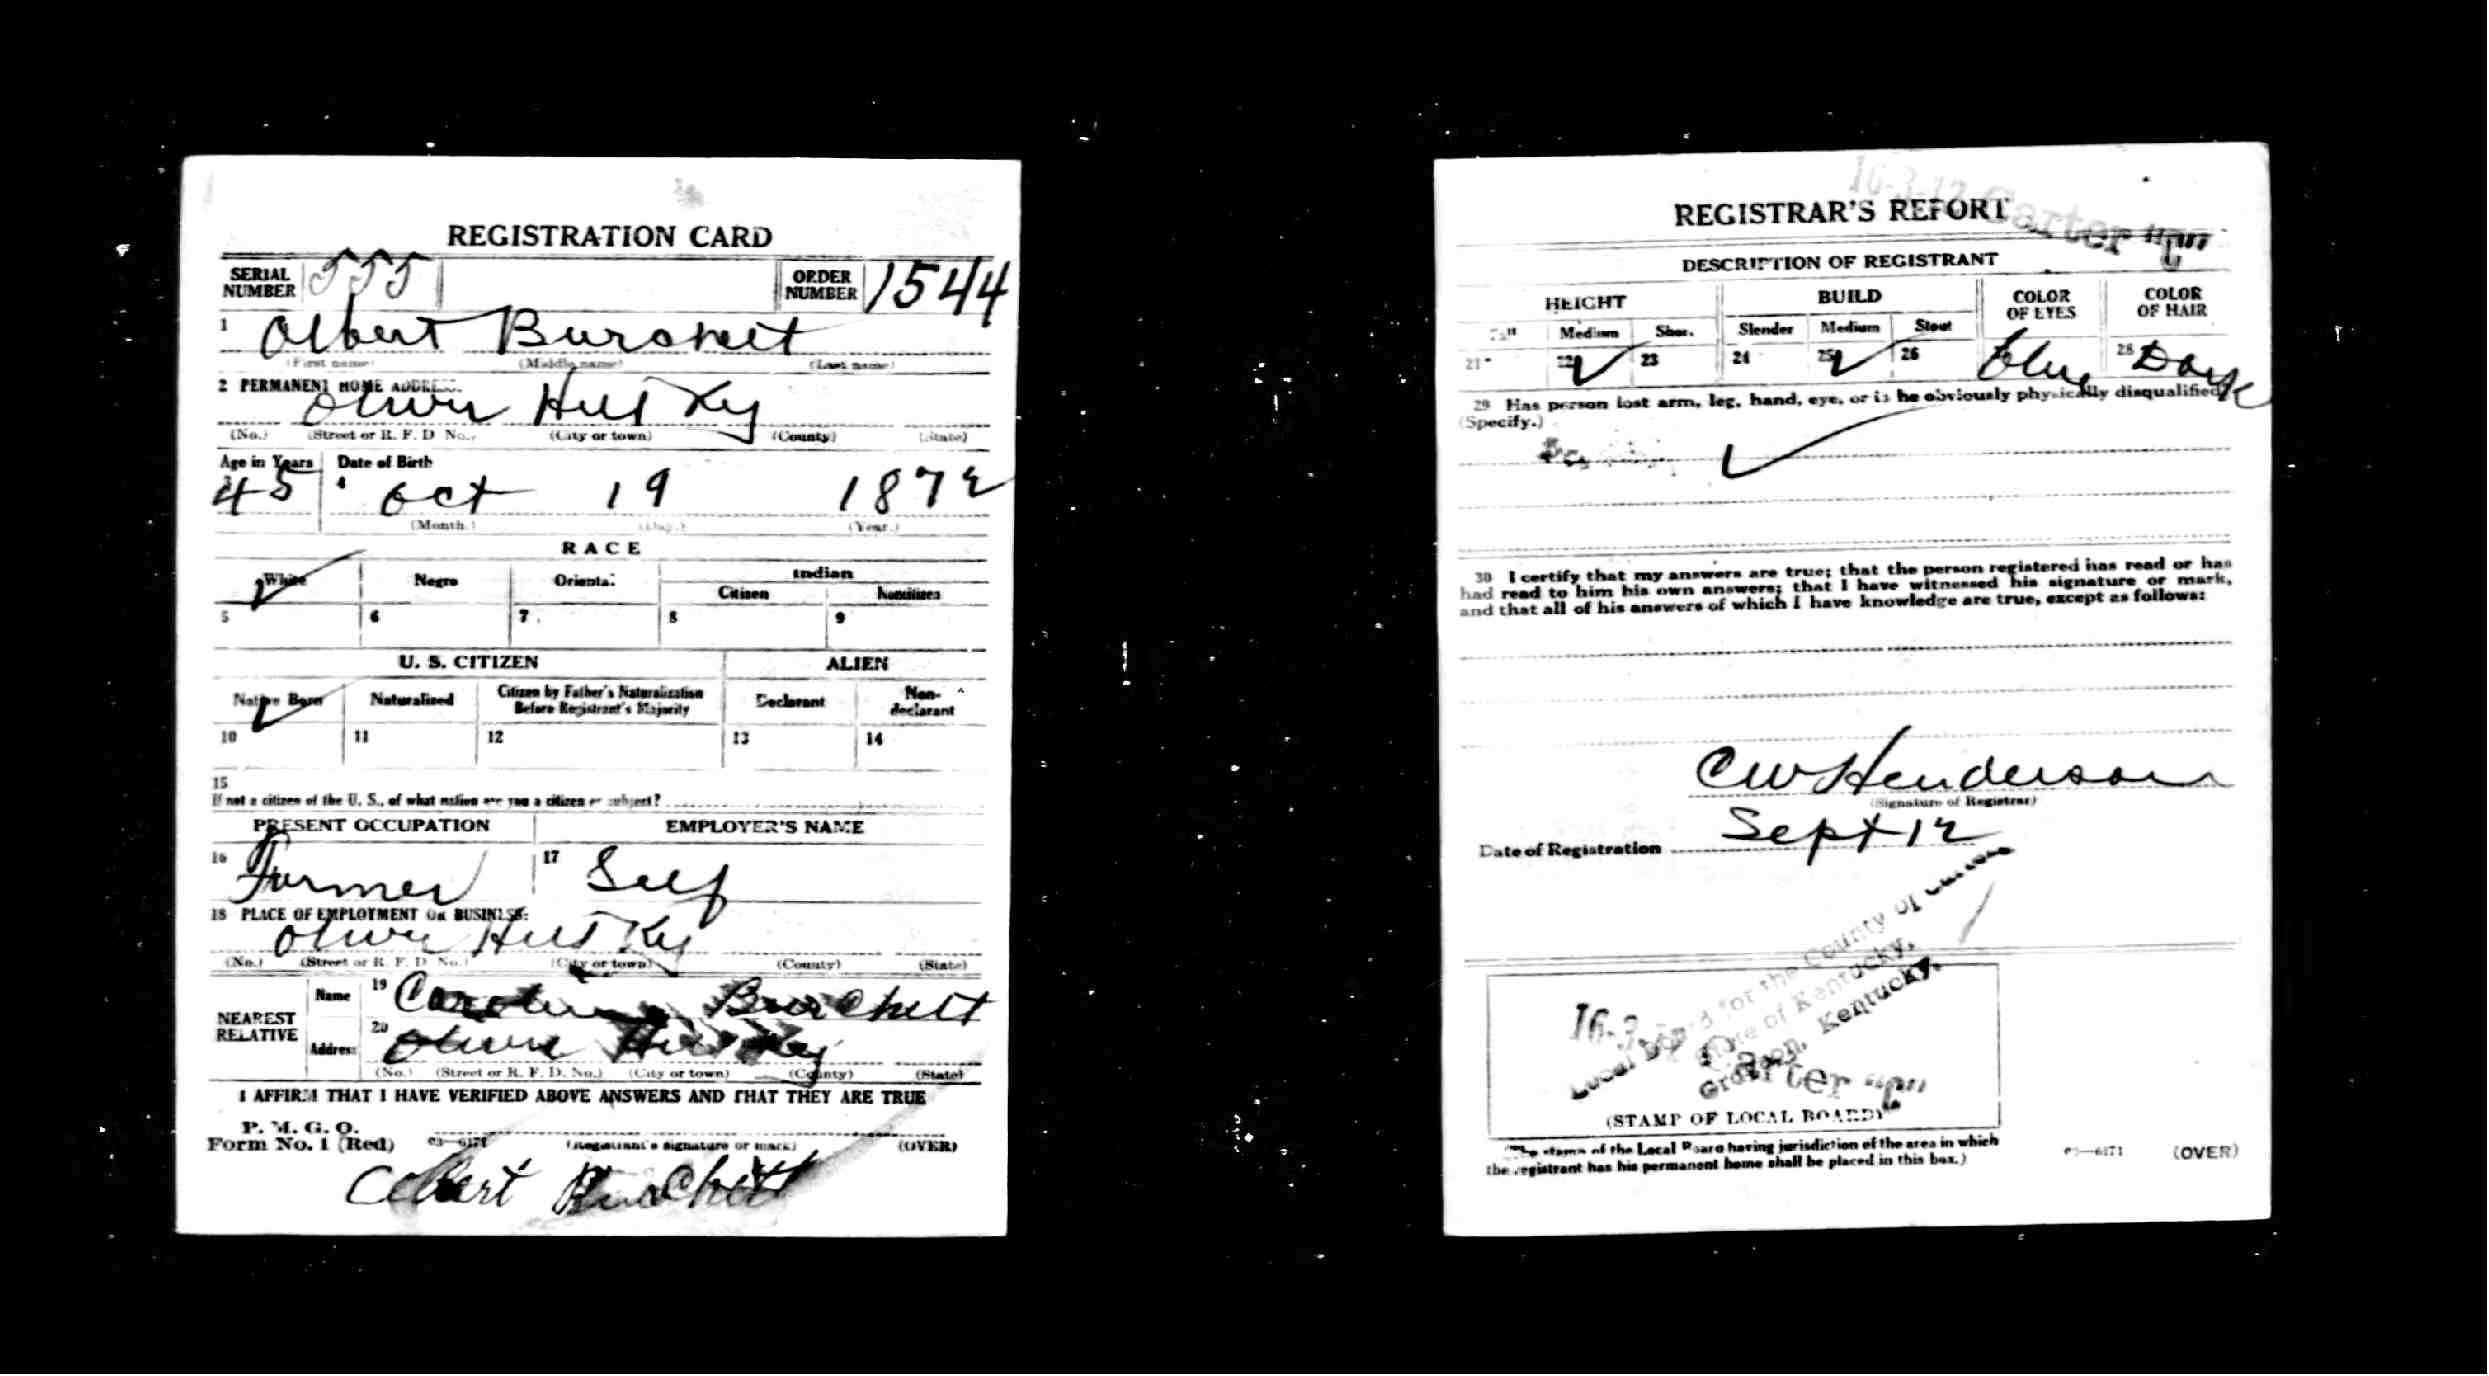 REGISTRATION CARD
SERIAL NUMBER 555 ORDER NUMBER 1544
1 Albert Burchett
(First name) (Middle name) (Last name)
2 PERMANENT HOME ADDRESS:
Olive Hill Ky
(No.) (Street or R. F. D. No.) (City or town) (County) (State)
Age in Years Date of Birth
45 4 Oct 19 1872
(Month.) (Day.) (Year.)
RACE
White Negro Oriental Indian
Citizen Noncitizen
5 6 7 8 9
U. S. CITIZEN ALIEN
Native Born Naturalized Citizen by Father's Naturalization Before Registrant's Majority Declarant Non-declarant
10 11 12 13 14
15
If not a citizen of the U. S., of what nation are you a citizen or subject?
PRESENT OCCUPATION EMPLOYER'S NAME
16 Farmer 17 Self
18 PLACE OF EMPLOYMENT OR BUSINESS:
Olive Hill Ky
(No.) (Street or R. F. D. No.) (City or town) (County) (State)
NEAREST RELATIVE
Name 19 Burchett
Address 20 Olive Hill Ky
(No.) (Street or R. F. D. No.) (City or town) (County) (State)
I AFFIRM THAT I HAVE VERIFIED ABOVE ANSWERS AND THAT THEY ARE TRUE
P. M. G. O.
Form No. 1 (Red) 03—6171 (Registrant's signature or mark) (OVER)
Albert Burchett
16-3-12 Carter "C"
REGISTRAR'S REPORT
DESCRIPTION OF REGISTRANT
HEIGHT BUILD COLOR OF EYES COLOR OF HAIR
Tall Medium Short Slender Medium Stout
21 22 23 24 25 26 blue 28 Dark
29 Has person lost arm, leg, hand, eye, or is he obviously physically disqualified?
(Specify.)
30 I certify that my answers are true; that the person registered has read or has
had read to him his own answers; that I have witnessed his signature or mark,
and that all of his answers of which I have knowledge are true, except as follows:
C W Henderson
(Signature of Registrar)
Date of Registration Sept 12
Local Board for the County of Carter
State of Kentucky,
Grayson, Kentucky.
16-3- Carter "C"
(STAMP OF LOCAL BOARD)
(The stamp of the Local Board having jurisdiction of the area in which
the registrant has his permanent home shall be placed in this box.)
03—6171 (OVER)